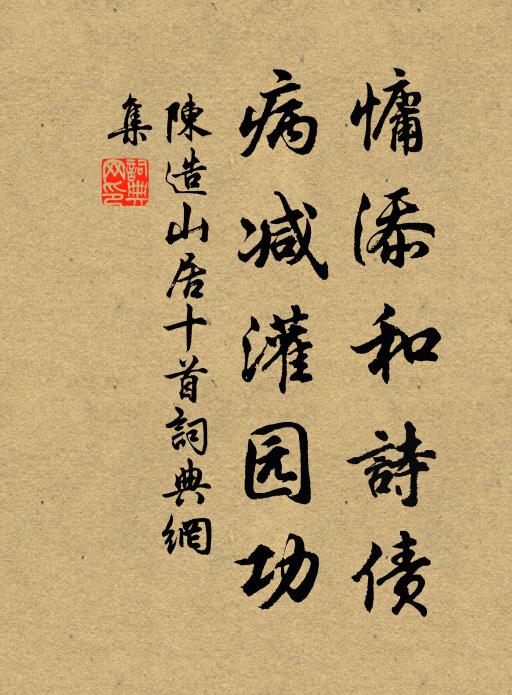 慵添和詩债
病减灌园功
陳造山居十首詞典網
集
詞典网印